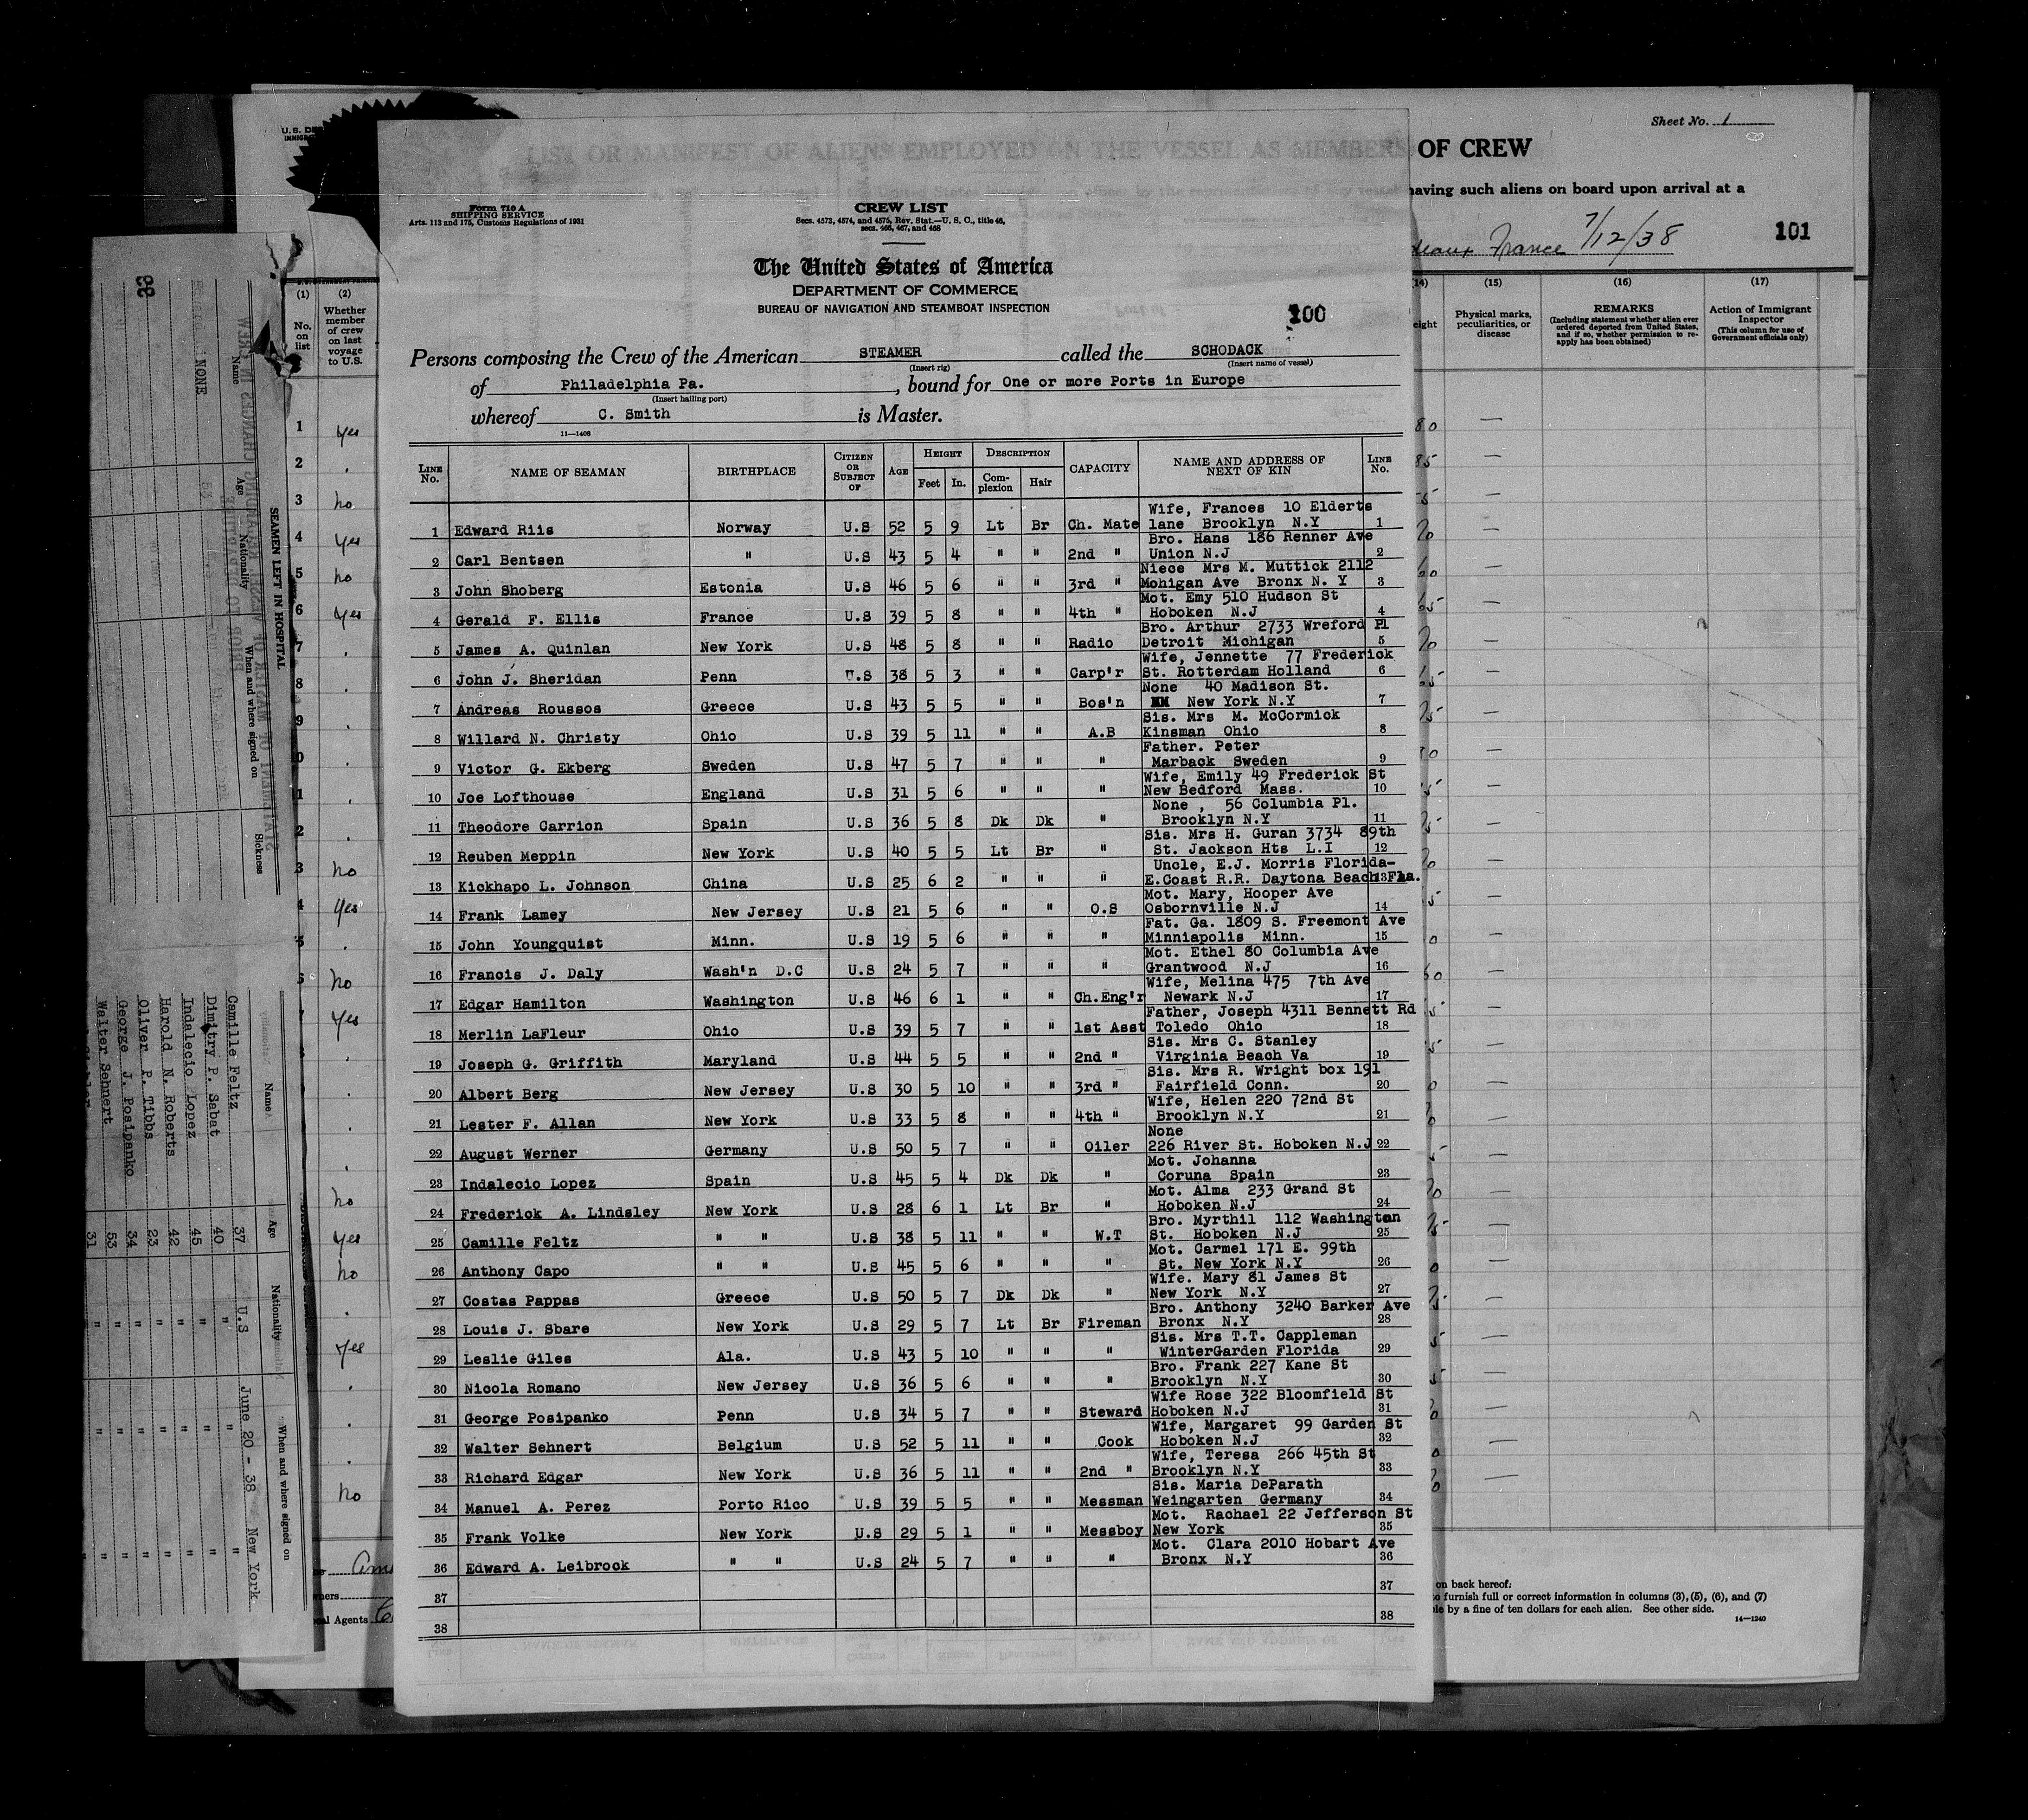 Sheet No. 1
OF CREW
having such aliens on board upon arrival at a
France 7/12/38
101
Form 710 A
SHIPPING SERVICE
Arts. 113 and 175, Customs Regulations of 1931
CREW LIST
Secs. 4573, 4574, and 4575, Rev. Stat.—U. S. C., title 46,
secs. 466, 467, and 468
The United States of America
DEPARTMENT OF COMMERCE
BUREAU OF NAVIGATION AND STEAMBOAT INSPECTION
100
Persons composing the Crew of the American STEAMER called the SCHODACK
(Insert rig) (Insert name of vessel)
of Philadelphia Pa. , bound for One or more Ports in Europe
(Insert hailing port)
whereof C. Smith is Master.
11—1408
LINE No. NAME OF SEAMAN BIRTHPLACE CITIZEN OR SUBJECT OF AGE HEIGHT Feet In. DESCRIPTION Complexion Hair CAPACITY NAME AND ADDRESS OF NEXT OF KIN LINE No.
Wife, Frances 10 Elderts
1 Edward Riis Norway U.S 52 5 9 Lt Br Ch. Mate lane Brooklyn N.Y 1
Bro. Hans 186 Renner Ave
2 Carl Bentsen " U.S 43 5 4 " " 2nd " Union N.J 2
Niece Mrs M. Muttick 2112
3 John Shoberg Estonia U.S 46 5 6 " " 3rd " Mohigan Ave Bronx N. Y 3
Mot. Emy 510 Hudson St
4 Gerald F. Ellis France U.S 39 5 8 " " 4th " Hoboken N.J 4
Bro. Arthur 2733 Wreford Pl
5 James A. Quinlan New York U.S 48 5 8 " " Radio Detroit Michigan 5
Wife, Jennette 77 Frederick
6 John J. Sheridan Penn U.S 38 5 3 " " Carp'r St. Rotterdam Holland 6
None 40 Madison St.
7 Andreas Roussos Greece U.S 43 5 5 " " Bos'n New York N.Y 7
Sis. Mrs M. McCormick
8 Willard N. Christy Ohio U.S 39 5 11 " " A.B Kinsman Ohio 8
Father. Peter
9 Victor G. Ekberg Sweden U.S 47 5 7 " " " Marback Sweden 9
Wife, Emily 49 Frederick St
10 Joe Lofthouse England U.S 31 5 6 " " " New Bedford Mass. 10
None , 56 Columbia Pl.
11 Theodore Carrion Spain U.S 36 5 8 Dk Dk " Brooklyn N.Y 11
Sis. Mrs H. Guran 3734 89th
12 Reuben Meppin New York U.S 40 5 5 Lt Br " St. Jackson Hts L.I 12
Uncle, E.J. Morris Florida-
13 Kickhapo L. Johnson China U.S 25 6 2 " " " E.Coast R.R. Daytona Beach Fla. 13
Mot. Mary, Hooper Ave
14 Frank Lamey New Jersey U.S 21 5 6 " " O.S Osbornville N.J 14
Fat. Ga. 1809 S. Freemont Ave
15 John Youngquist Minn. U.S 19 5 6 " " " Minniapolis Minn. 15
Mot. Ethel 80 Columbia Ave
16 Francis J. Daly Wash'n D.C U.S 24 5 7 " " " Grantwood N.J 16
Wife, Melina 475 7th Ave
17 Edgar Hamilton Washington U.S 46 6 1 " " Ch.Eng'r Newark N.J 17
Father, Joseph 4311 Bennett Rd
18 Merlin LaFleur Ohio U.S 39 5 7 " " 1st Asst Toledo Ohio 18
Sis. Mrs C. Stanley
19 Joseph G. Griffith Maryland U.S 44 5 5 " " 2nd " Virginia Beach Va 19
Sis. Mrs R. Wright box 191
20 Albert Berg New Jersey U.S 30 5 10 " " 3rd " Fairfield Conn. 20
Wife, Helen 220 72nd St
21 Lester F. Allan New York U.S 33 5 8 " " 4th " Brooklyn N.Y 21
None
22 August Werner Germany U.S 50 5 7 " " Oiler 226 River St. Hoboken N.J 22
Mot. Johanna
23 Indalecio Lopez Spain U.S 45 5 4 Dk Dk " Coruna Spain 23
Mot. Alma 233 Grand St
24 Frederick A. Lindsley New York U.S 28 6 1 Lt Br " Hoboken N.J 24
Bro. Myrthil 112 Washington
25 Camille Feltz " " U.S 38 5 11 " " W.T St. Hoboken N.J 25
Mot. Carmel 171 E. 99th
26 Anthony Capo " " U.S 45 5 6 " " " St. New York N.Y 26
Wife. Mary 81 James St
27 Costas Pappas Greece U.S 50 5 7 Dk Dk " New York N.Y 27
Bro. Anthony 3240 Barker Ave
28 Louis J. Sbare New York U.S 29 5 7 Lt Br Fireman Bronx N.Y 28
Sis. Mrs T.T. Cappleman
29 Leslie Giles Ala. U.S 43 5 10 " " " WinterGarden Florida 29
Bro. Frank 227 Kane St
30 Nicola Romano New Jersey U.S 36 5 6 " " " Brooklyn N.Y 30
Wife Rose 322 Bloomfield St
31 George Posipanko Penn U.S 34 5 7 " " Steward Hoboken N.J 31
Wife, Margaret 99 Garden St
32 Walter Sehnert Belgium U.S 52 5 11 " " Cook Hoboken N.J 32
Wife, Teresa 266 45th St
33 Richard Edgar New York U.S 36 5 11 " " 2nd " Brooklyn N.Y 33
Sis. Maria DeParath
34 Manuel A. Perez Porto Rico U.S 39 5 5 " " Messman Weingarten Germany 34
Mot. Rachael 22 Jefferson St
35 Frank Volke New York U.S 29 5 1 " " Messboy New York 35
Mot. Clara 2010 Hobart Ave
36 Edward A. Leibrook " " U.S 24 5 7 " " " Bronx N.Y 36
37 37
38 38
(15) Physical marks, peculiarities, or disease
(16) REMARKS
(Including statement whether alien ever ordered deported from United States, and if so, whether permission to reapply has been obtained)
(17) Action of Immigrant Inspector
(This column for use of Government officials only)
on back hereof.
furnish full or correct information in columns (3), (5), (6), and (7)
by a fine of ten dollars for each alien. See other side.
14—1240
(1) No. on list
(2) Whether member of crew on last voyage to U.S.
SEAMEN LEFT IN HOSPITAL
Name Age Nationality When and where signed on Sickness
NONE
Name Age Nationality When and where signed on
Camille Feltz 37 U.S June 20 - 38 New York.
Dimitry P. Sabat 40 " " "
Indalecio Lopez 45 " " "
Harold N. Roberts 42 " " "
Oliver P. Tibbs 23 " " "
George J. Posipanko 34 " " "
Walter Sehnert 53 " " "
31